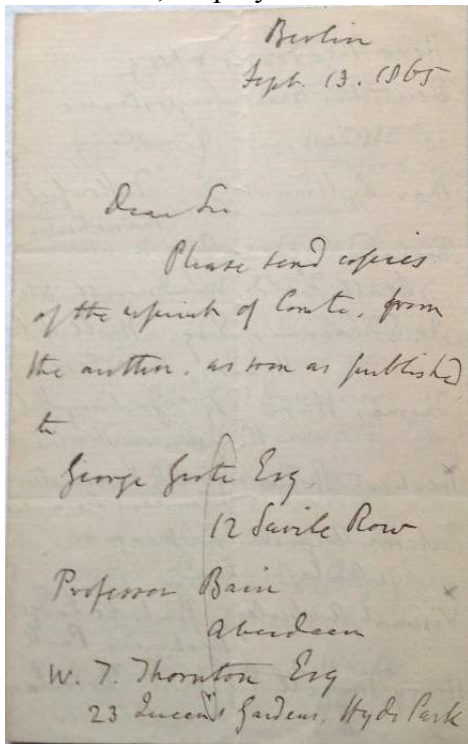 Berlin
Sept. 13. 1865
Dear Sir
Please send copies
of the reprint of Comte, from
the author, as soon as published
to
George Grote Esq
12 Savile Row
Professor Bain
Aberdeen
W. T. Thornton Esq
23 Queen's Gardens, Hyde Park